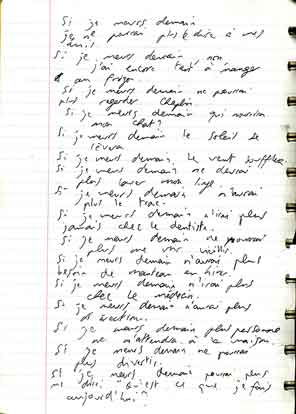 Si je meurs demain
je ne pourrai plus le dire à mes
amis
Si je meurs demain non
j'ai encore tout à manger
au frigo
Si je meurs demain ne pourrai
plus regarder Chaplin
Si je meurs demain qui nourrira
mon chat?
Si je meurs demain le soleil se
lèvera
Si je meurs demain, le vent soufflera
Si je meurs demain ne devrai
plus laver mon linge
Si je meurs demain n'aurai
plus le trac
Si je meurs demain n'irai plus
jamais chez le dentiste.
Si je meurs demain ne pourrai
plus me voir vieillir.
Si je meurs demain n'aurai plus
besoin de manteau en hiver
Si je meurs demain n'irai plus
chez le médecin.
Si je meurs demain n'aurai plus
d'érection.
Si je meurs demain plus personne
ne m'attendra à la maison.
Si je meurs demain ne pourrai
plus divertir.
Si je meurs demain pourrai plus
me dire "qu'est ce que je fais
aujourd'hui"